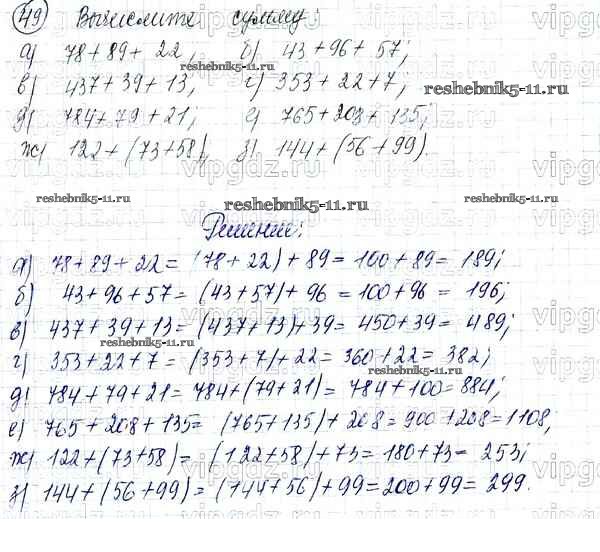 49 Вычислите сумму:
а) 78+89+22; б) 43+96+57;
в) 437+39+13; г) 353+22+7;
д) 784+79+21; е) 765+208+135;
ж) 122+(73+58); з) 144+(56+99).
Решение:
а) 78+89+22= (78+22)+89=100+89=189;
б) 43+96+57= (43+57)+96=100+96=196;
в) 437+39+13= (437+13)+39=450+39=489;
г) 353+22+7= (353+7)+22=360+22=382;
д) 784+79+21=784+(79+21)=784+100=884;
е) 765+208+135= (765+135)+208=900+208=1108;
ж) 122+(73+58)= (122+58)+73=180+73=253;
з) 144+(56+99)= (144+56)+99=200+99=299.
reshebnik5-11.ru
reshebnik5-11.ru
reshebnik5-11.ru
reshebnik5-11.ru
reshebnik5-11.ru
reshebnik5-11.ru
vipgdz.ru
vipgdz.ru
vipgdz.ru
vipgdz.ru